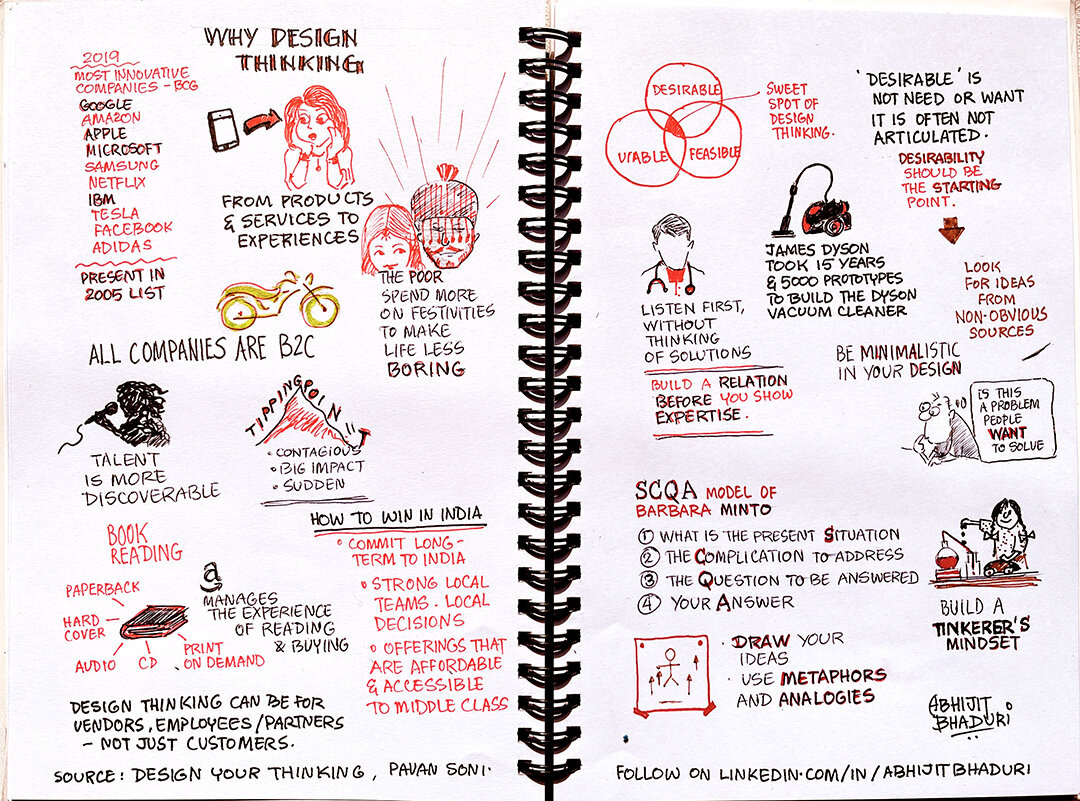 WHY DESIGN
THINKING
2019
MOST INNOVATIVE
COMPANIES - BCG
GOOGLE
AMAZON
APPLE
MICROSOFT
SAMSUNG
NETFLIX
IBM
TESLA
FACEBOOK
ADIDAS
PRESENT IN
2005 LIST
FROM PRODUCTS
& SERVICES TO
EXPERIENCES
THE POOR
SPEND MORE
ON FESTIVITIES
TO MAKE
LIFE LESS
BORING
ALL COMPANIES ARE B2C
TALENT
IS MORE
DISCOVERABLE
TIPPING POINT
• CONTAGIOUS
• BIG IMPACT
• SUDDEN
BOOK
READING
PAPERBACK
HARD
COVER
AUDIO
CD
PRINT
ON DEMAND
a
MANAGES
THE EXPERIENCE
OF READING
& BUYING
HOW TO WIN IN INDIA
• COMMIT LONG-
TERM TO INDIA
• STRONG LOCAL
TEAMS. LOCAL
DECISIONS
• OFFERINGS THAT
ARE AFFORDABLE
& ACCESSIBLE
TO MIDDLE CLASS
DESIGN THINKING CAN BE FOR
VENDORS, EMPLOYEES/PARTNERS
- NOT JUST CUSTOMERS.
SOURCE: DESIGN YOUR THINKING, PAVAN SONI.
DESIRABLE
VIABLE
FEASIBLE
SWEET
SPOT OF
DESIGN
THINKING.
'DESIRABLE' IS
NOT NEED OR WANT
IT IS OFTEN NOT
ARTICULATED.
DESIRABILITY
SHOULD BE
THE STARTING
POINT.
LOOK
FOR IDEAS
FROM
NON-OBVIOUS
SOURCES
JAMES DYSON
TOOK 15 YEARS
& 5000 PROTOTYPES
TO BUILD THE DYSON
VACUUM CLEANER
LISTEN FIRST,
WITHOUT
THINKING
OF SOLUTIONS
BUILD A RELATION
BEFORE YOU SHOW
EXPERTISE.
BE MINIMALISTIC
IN YOUR DESIGN
IS THIS
A PROBLEM
PEOPLE
WANT
TO SOLVE
SCQA MODEL OF
BARBARA MINTO
① WHAT IS THE PRESENT SITUATION
② THE COMPLICATION TO ADDRESS
③ THE QUESTION TO BE ANSWERED
④ YOUR ANSWER
BUILD A
TINKERER'S
MINDSET
• DRAW YOUR
IDEAS
• USE METAPHORS
AND ANALOGIES
ABHIJIT
BHADURI
FOLLOW ON LINKEDIN.COM/IN/ABHIJITBHADURI